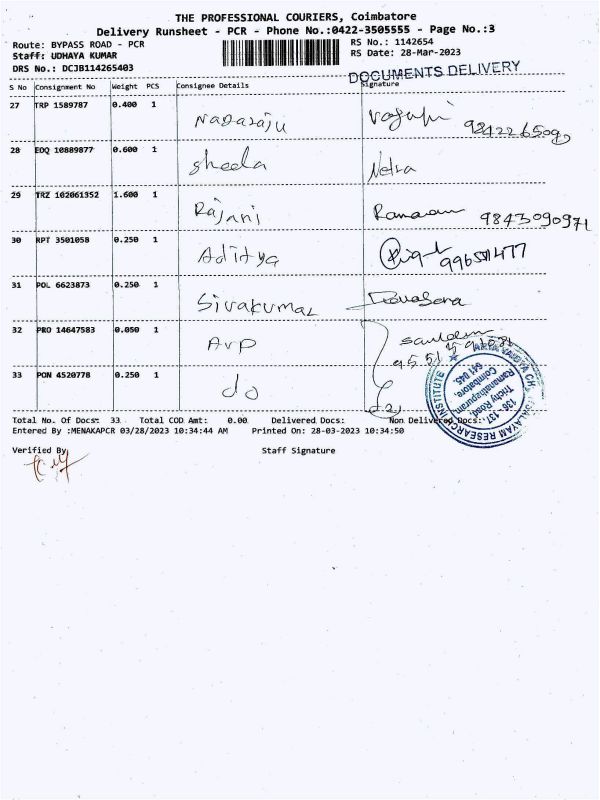 THE PROFESSIONAL COURIERS, Coimbatore
Delivery Runsheet - PCR - Phone No.:0422-3505555 - Page No.:3
Route: BYPASS ROAD - PCR RS No.: 1142654
Staff: UDHAYA KUMAR RS Date: 28-Mar-2023
DRS No.: DCJB114265403 DOCUMENTS DELIVERY
S No Consignment No Weight PCS Consignee Details Signature
27 TRP 1589787 0.400 1 Nagaraju
28 EDQ 10889877 0.600 1 Sheela
29 TRZ 102061352 1.600 1 Rajani 9843090971
30 RPT 3501058 0.250 1 Aditya
31 POL 6623873 0.250 1 Sivakumar
32 PRO 14647583 0.050 1 AVP
33 PON 4520778 0.250 1 do
Total No. Of Docs: 33 Total COD Amt: 0.00 Delivered Docs: Non Delivered Docs:
Entered By :MENAKAPCR 03/28/2023 10:34:44 AM Printed On: 28-03-2023 10:34:50
Verified By Staff Signature
136 -137
Trichy Road,
Ramanathapuram
Coimbatore.
641 045.